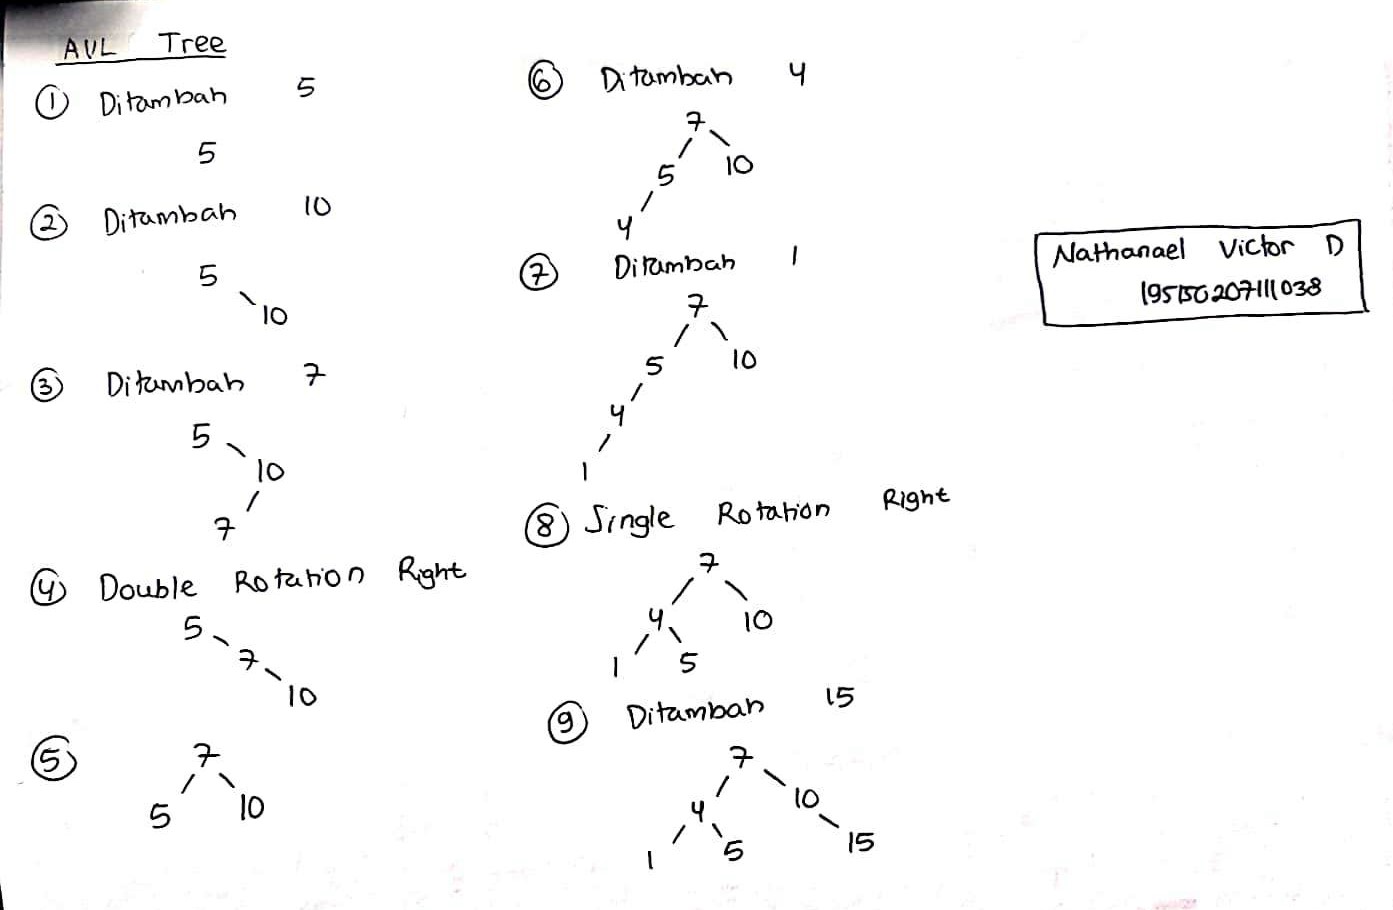 AVL Tree
① Ditambah 5
5
② Ditambah 10
5
10
③ Ditambah 7
5
10
7
④ Double Rotation Right
5
7
10
⑤
7
5 10
⑥ Ditambah 4
7
5 10
4
⑦ Ditambah 1
7
5 10
4
1
⑧ Single Rotation Right
7
4 10
1 5
⑨ Ditambah 15
7
4 10
1 5 15
Nathanael Victor D
195150207111038